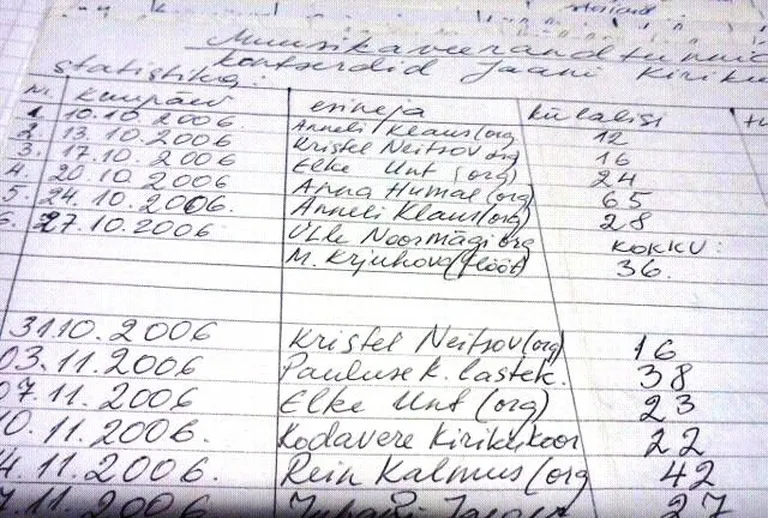 Muusikaveerandtunnid
kontserdid Jaani kiriku
statistika:
Nr. kuupäev esineja külalisi
1. 10.10.2006 Anneli Klaus (org 12
2. 13.10.2006 Kristel Neitsov org 16
3. 17.10.2006 Elke Unt (org) 24
4. 20.10.2006 Anna Humal (org) 65
5. 24.10.2006. Anneli Klaus (org) 28
6. 27.10.2006 Ülle Noormägi org kokku:
M. Krjukova (flööt) 36.
31.10.2006 Kristel Neitsov (org) 16
03.11.2006 Pauluse k. lastek. 38
07.11.2006 Elke Unt (org) 23
10.11.2006. Kodavere kirikukoor 22
14.11.2006. Rein Kalmus (org 42
11.2006 27